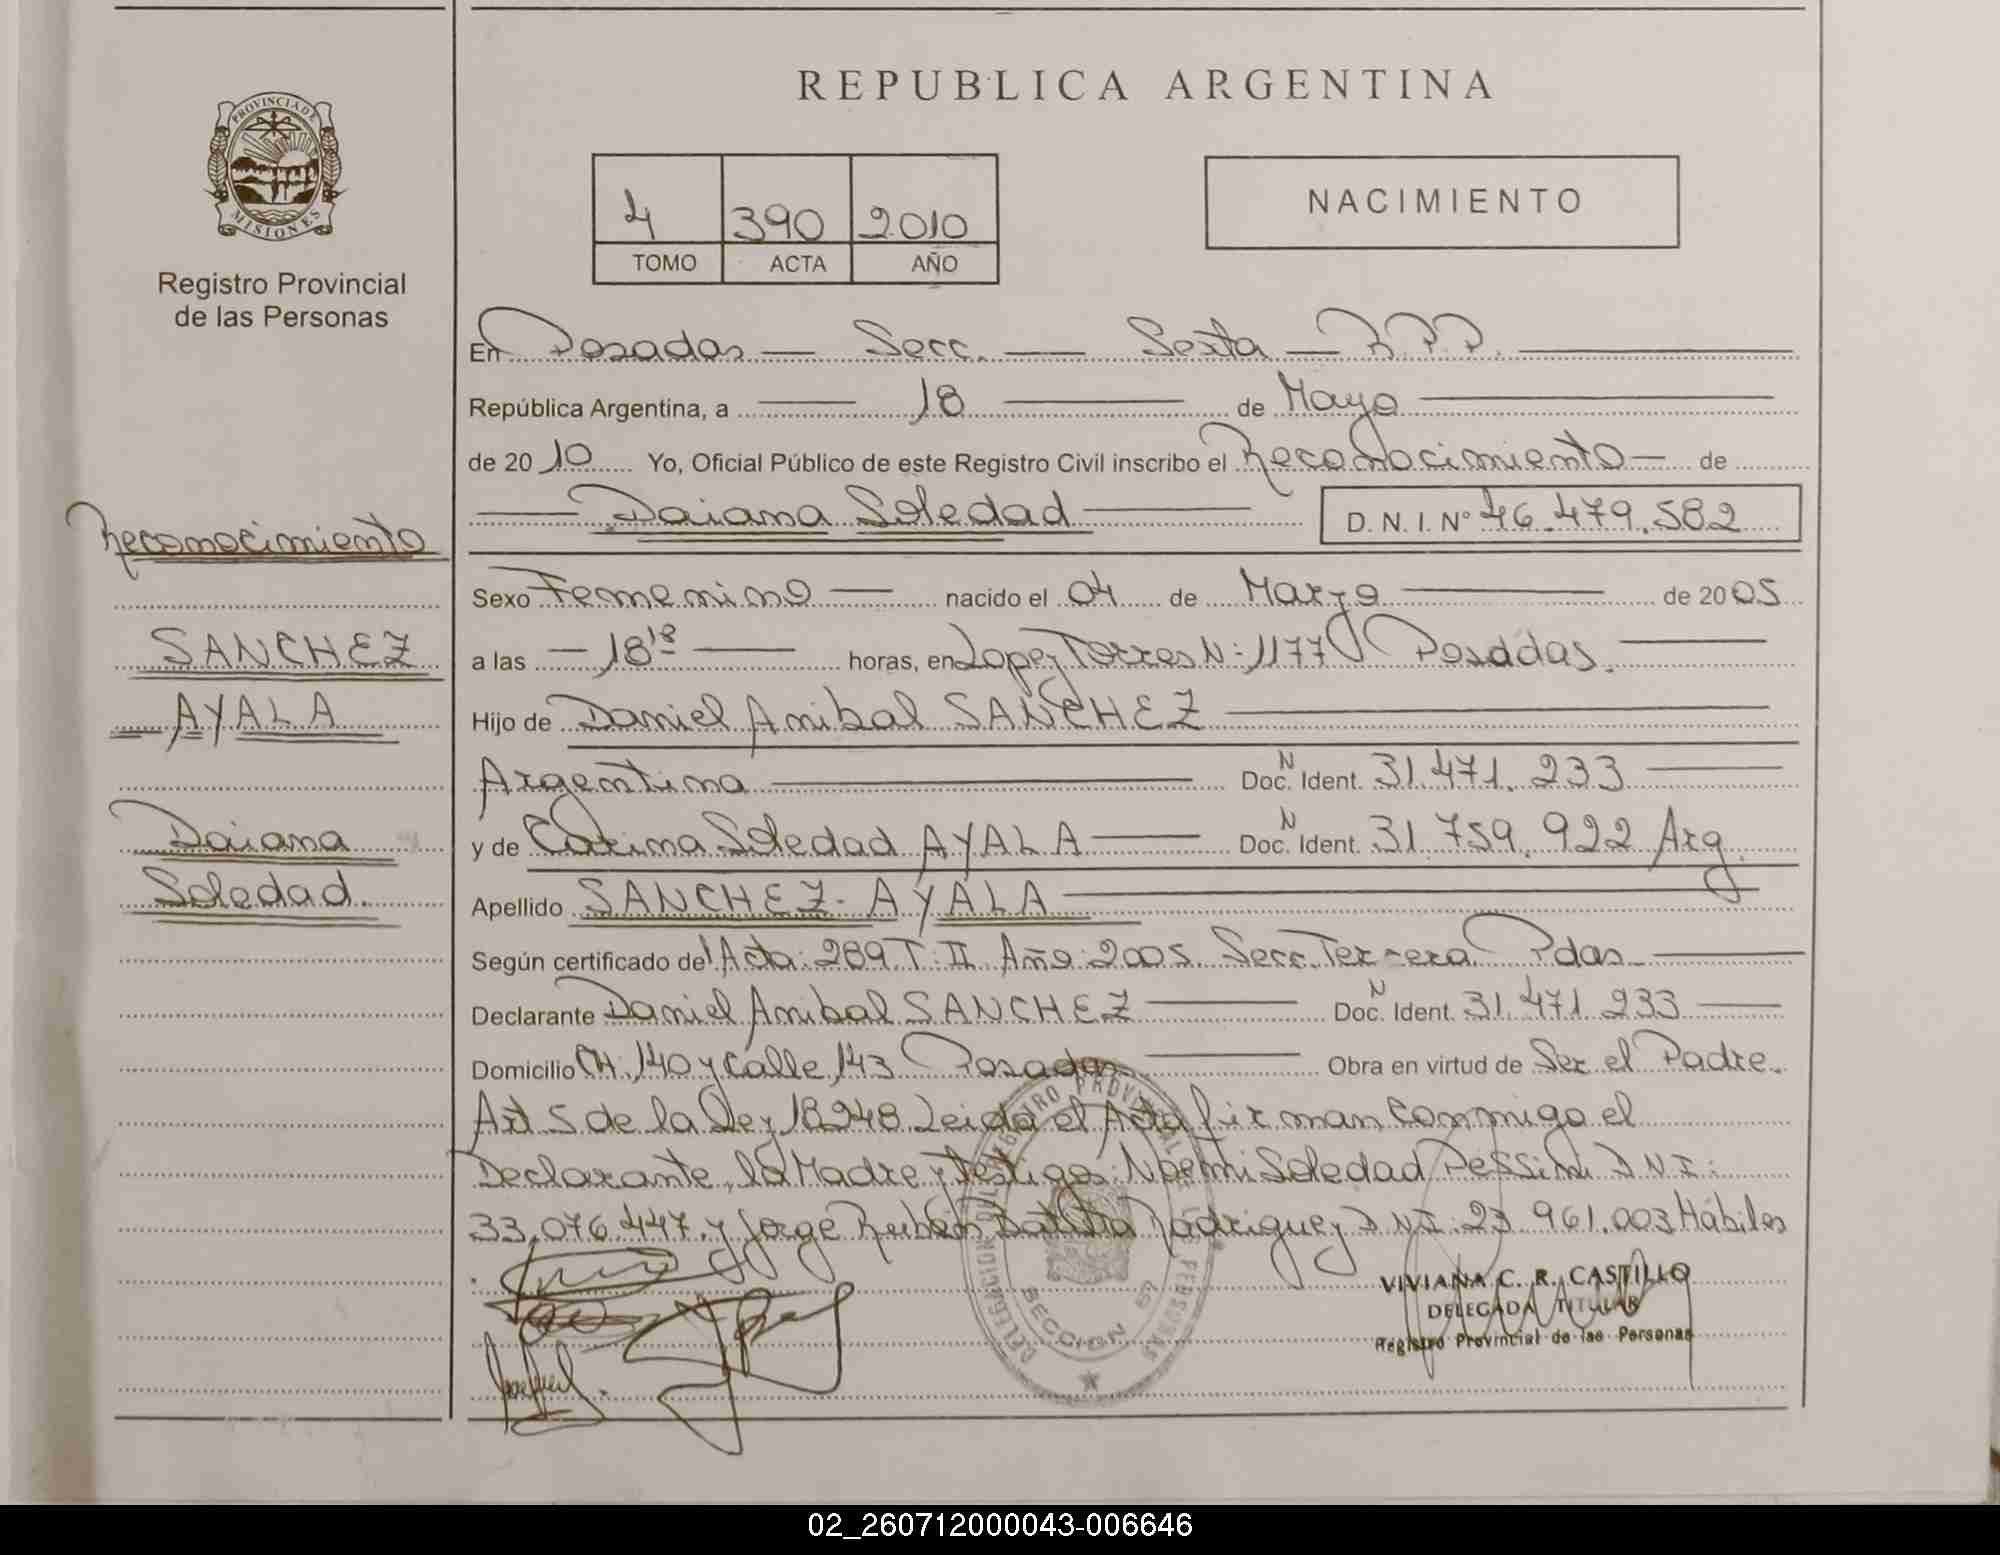 REPUBLICA ARGENTINA
PROVINCIA DE
MISIONES
Registro Provincial
de las Personas
4 390 2010
TOMO ACTA AÑO
NACIMIENTO
En Posadas — Secc. — Sexta — R.P.P.
República Argentina, a — 18 — de Mayo
de 2010 Yo, Oficial Público de este Registro Civil inscribo el Reconocimiento — de
Daiana Soledad D.N.I. Nº 46.479.582
Reconocimiento
SANCHEZ
AYALA
Daiana
Soledad.
Sexo Femenino — nacido el 04 de Marzo de 2005
a las — 18 18 — horas, en Lopez Torres N: 1177 Posadas.
Hijo de Daniel Anibal SANCHEZ
Argentina Doc. N Ident. 31.471.233
y de Carina Soledad AYALA Doc. N Ident. 31.759.922 Arg.
Apellido SANCHEZ - AYALA
Según certificado del Acta: 289 T: II Año: 2005 Secc. Tercera Pdas
Declarante Daniel Anibal SANCHEZ Doc. N Ident. 31.471.233
Domicilio CH. 140 y Calle 143 Posadas Obra en virtud de Ser el Padre.
Art 5 de la Ley 18248 Leida el Acta firman conmigo el
Declarante, la Madre y Testigos: Noemi Soledad Pessini D.N.I:
33.076.447. y Jorge Ruben Batista Rodriguez D.N.I: 23.961.003 Hábiles
VIVIANA C. R. CASTILLO
DELEGADA TITULAR
Registro Provincial de las Personas
02_260712000043-006646